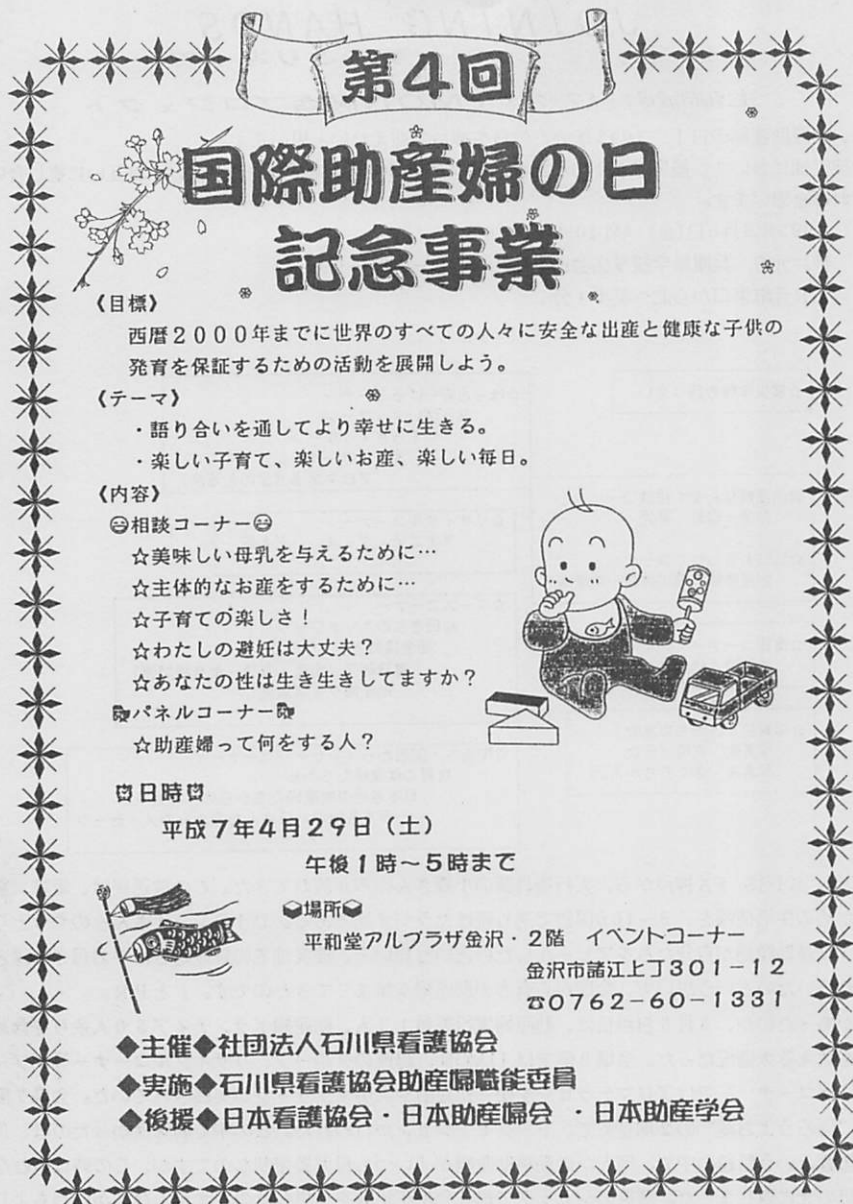 第4回
国際助産婦の日
記念事業
《目標》
西暦2000年までに世界のすべての人々に安全な出産と健康な子供の
発育を保証するための活動を展開しよう。
《テーマ》
・語り合いを通してより幸せに生きる。
・楽しい子育て、楽しいお産、楽しい毎日。
《内容》
相談コーナー
☆美味しい母乳を与えるために…
☆主体的なお産をするために…
☆子育ての楽しさ！
☆わたしの避妊は大丈夫？
☆あなたの性は生き生きしてますか？
パネルコーナー
☆助産婦って何をする人？
日時
平成7年4月29日（土）
午後1時～5時まで
場所
平和堂アルプラザ金沢・2階　イベントコーナー
金沢市諸江上丁301－12
☎0762－60－1331
◆主催◆社団法人石川県看護協会
◆実施◆石川県看護協会助産婦職能委員
◆後援◆日本看護協会・日本助産婦会・日本助産学会